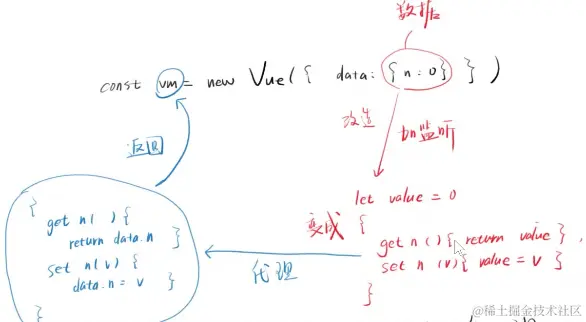 数据
const vm = new Vue({ data: {n:0} })
改造
加监听
返回
let value = 0
变成
{
get n(){ return value },
set n(v){ value = v }
}
代理
{
get n( ){
return data.n
}
set n(v){
data.n = v
}
}
@稀土掘金技术社区